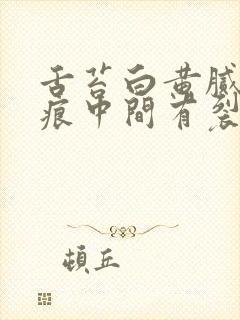 舌苔白黄腻
痕中间有裂
顿丘